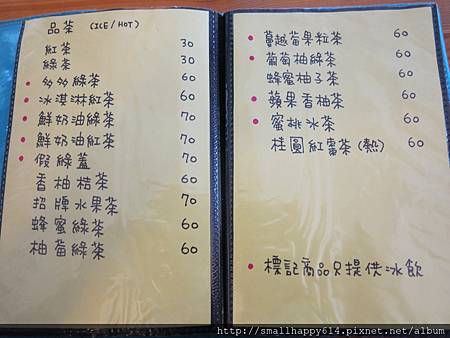 品茶 (ICE/HOT)
紅茶 30
綠茶 30
• 多多綠茶 60
• 冰淇淋紅茶 60
• 鮮奶油綠茶 70
• 鮮奶油紅茶 70
• 假綠蓋 70
香柚桔茶 60
招牌水果茶 70
蜂蜜綠茶 60
柚莓綠茶 60
• 蔓越莓果粒茶 60
• 葡萄柚綠茶 60
蜂蜜柚子茶 60
• 蘋果香柚茶 60
• 蜜桃冰茶 60
桂圓紅棗茶(熱) 60
• 標記商品只提供冰飲
http://smallhappy614.pixnet.net/album